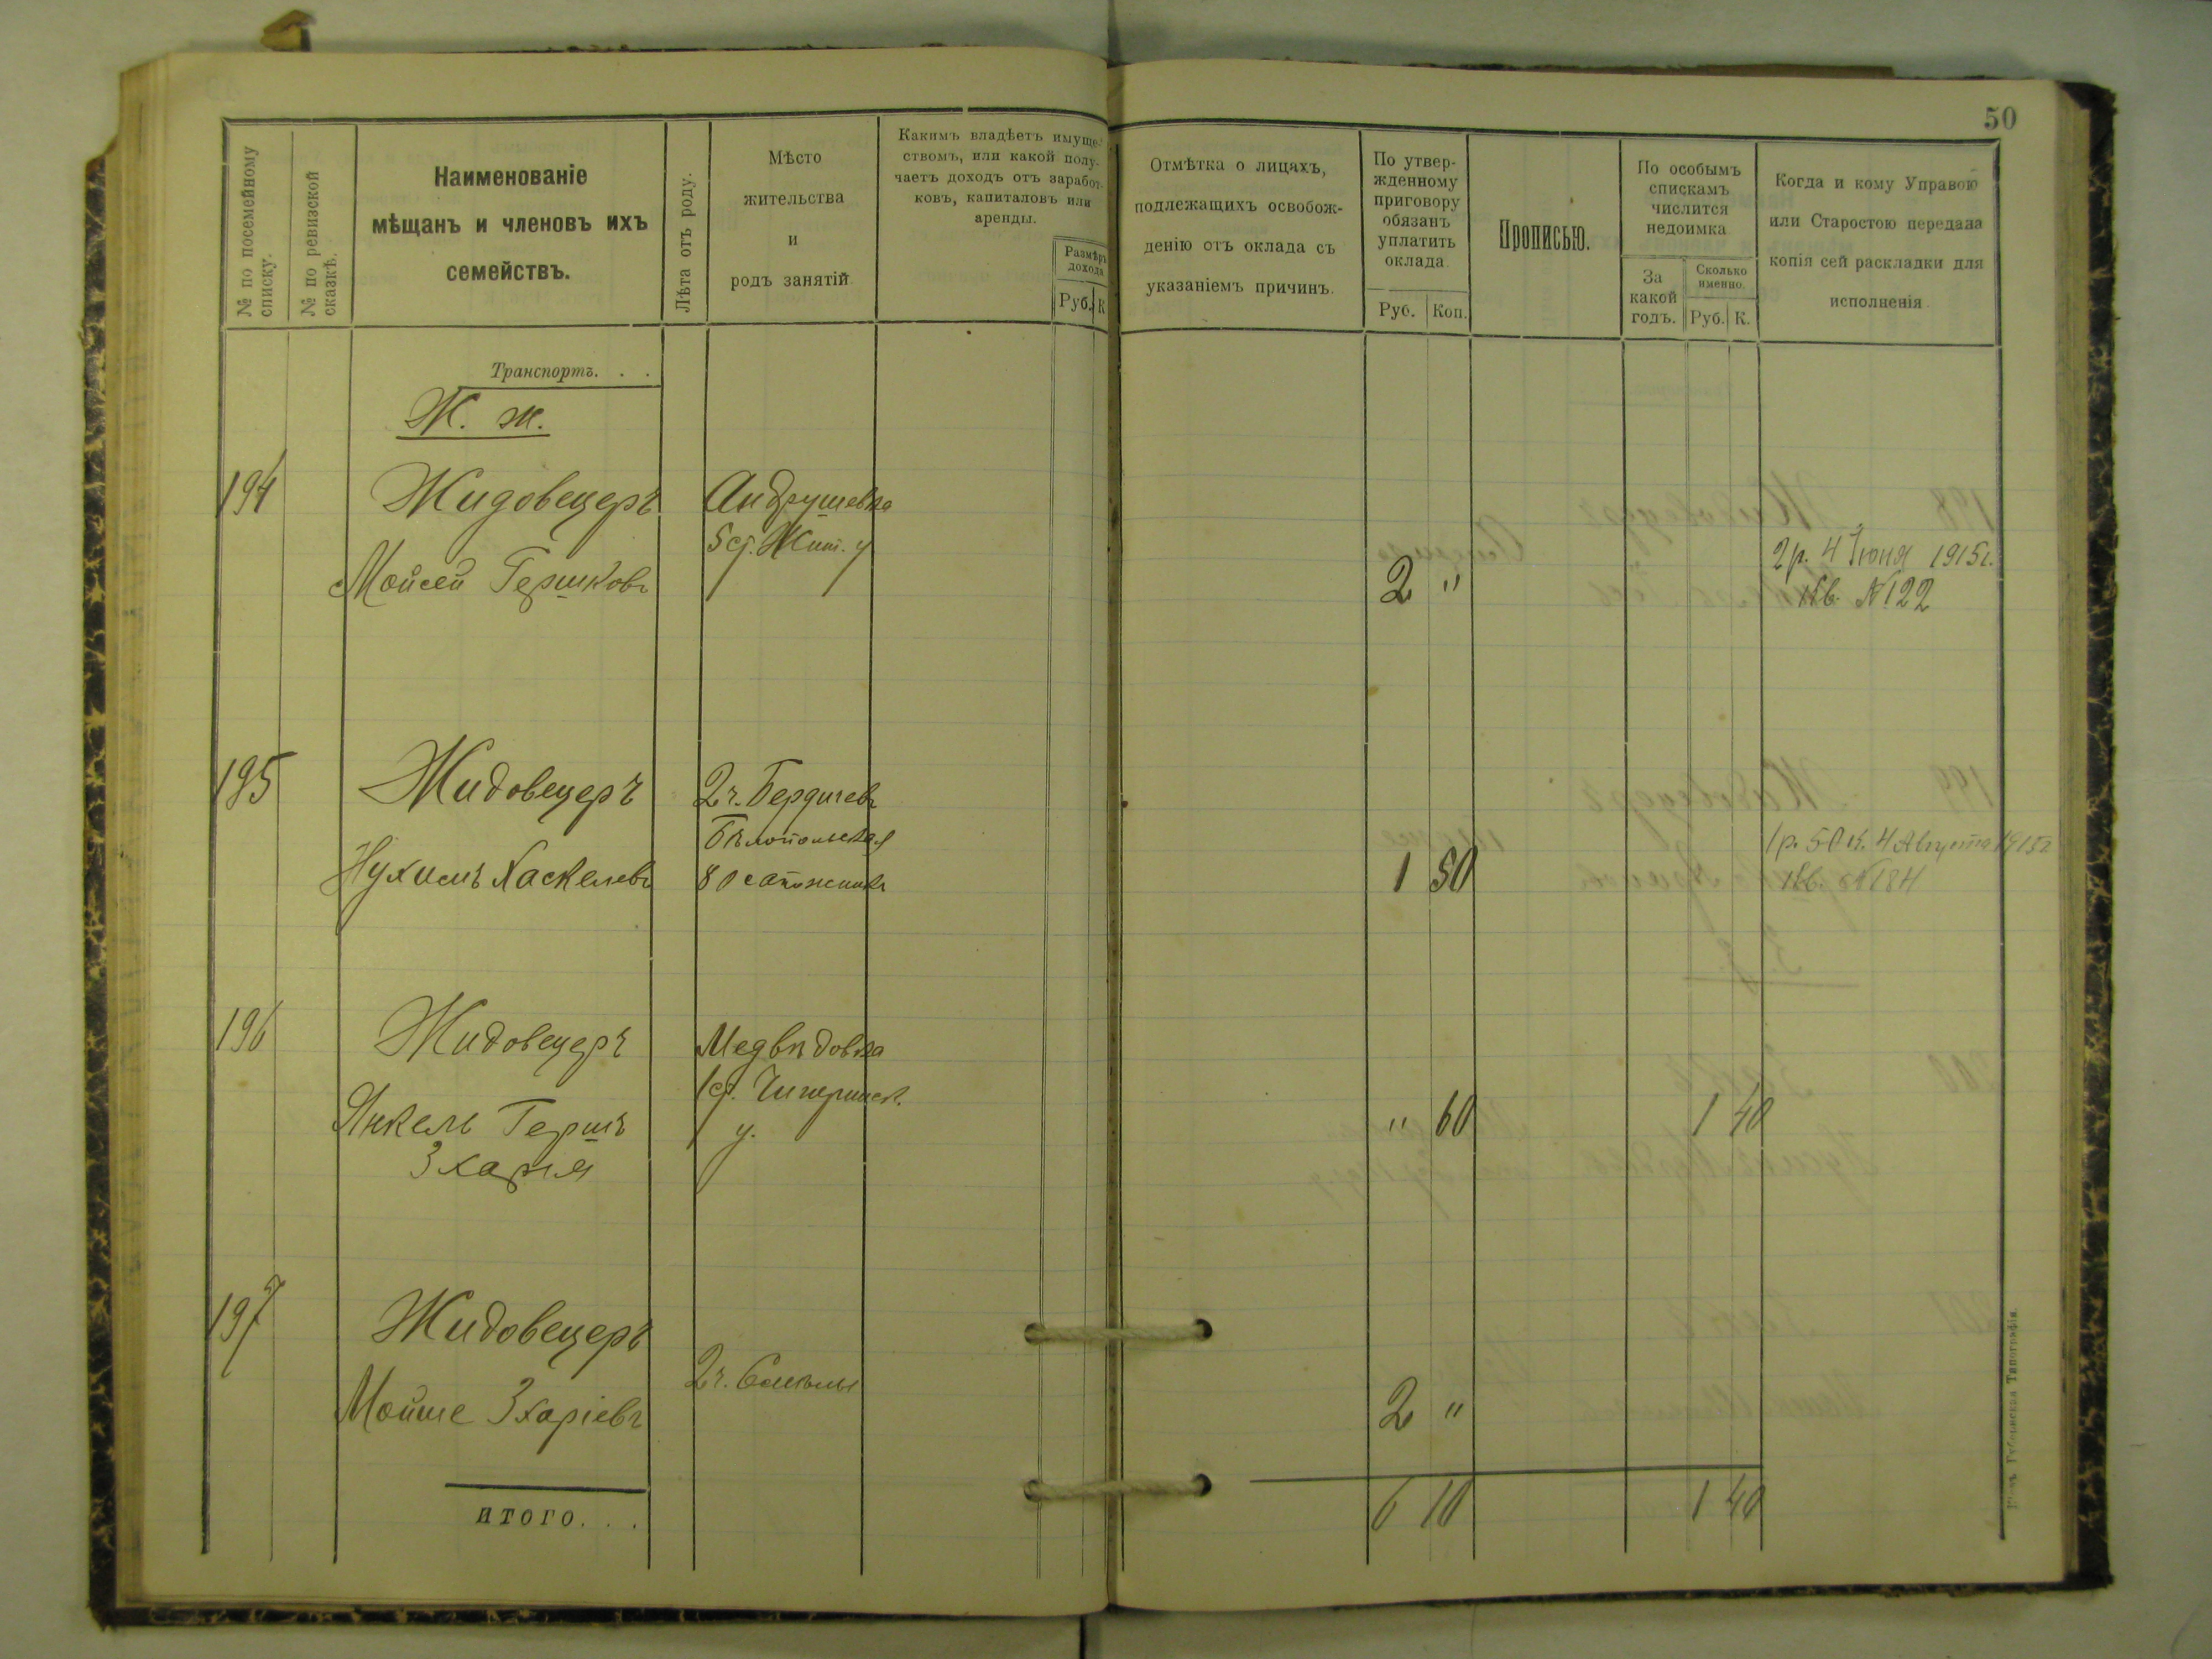 50
№ по посемейному списку.
№ по ревизской сказкѣ.
Наименованіе
мѣщанъ и членовъ ихъ
семействъ.
Лѣта отъ роду.
Мѣсто
жительства
и
родъ занятій
Какимъ владѣетъ имуще-
ствомъ, или какой полу-
чаетъ доходъ отъ заработ-
ковъ, капиталовъ или
аренды.
Размѣръ
дохода
Руб. К
Отмѣтка о лицахъ,
подлежащихъ освобож-
денію отъ оклада съ
указаніемъ причинъ.
По утвер-
жденному
приговору
обязанъ
уплатить
оклада
Руб. Коп.
Прописью.
По особымъ
спискамъ
числится
недоимка
За
какой
годъ.
Сколько
именно
Руб. К.
Когда и кому Управою
или Старостою передана
копія сей раскладки для
исполненія
Транспортъ. . .
Ж. ж.
194 Жидовецеръ Андрушевка
5 ст. Жит. у
Мойсей Гершковъ 2 "
2 р. 4 Іюня 1915 г.
Кв. № 122
195 Жидовецеръ 2 ч. Бердичевъ
Бѣлопольская
Нухимъ Хаскелевъ 80 сапожникъ 1 50
1 р. 50 к. 4 Августа 1915 г
Кв. № 184
196 Жидовецеръ Медвѣдовка
1 ст. Чигиринск.
Янкель Гершъ у. " 60 1 40
Зхарія
197 Жидовецеръ
2 ч.
Мойше Зхаріевъ 2 "
ИТОГО. . . 6 10 1 40
Губернская Типографія